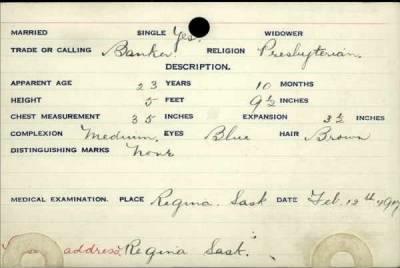 MARRIED SINGLE Yes. WIDOWER
TRADE OR CALLING Banker. RELIGION Presbyterian.
DESCRIPTION.
APPARENT AGE 23 YEARS 10 MONTHS
HEIGHT 5 FEET 9½ INCHES
CHEST MEASUREMENT 35 INCHES EXPANSION 3½ INCHES
COMPLEXION Medium. EYES Blue HAIR Brown
DISTINGUISHING MARKS None
MEDICAL EXAMINATION. PLACE Regina. Sask DATE Feb. 12th
address, Regina Sask.